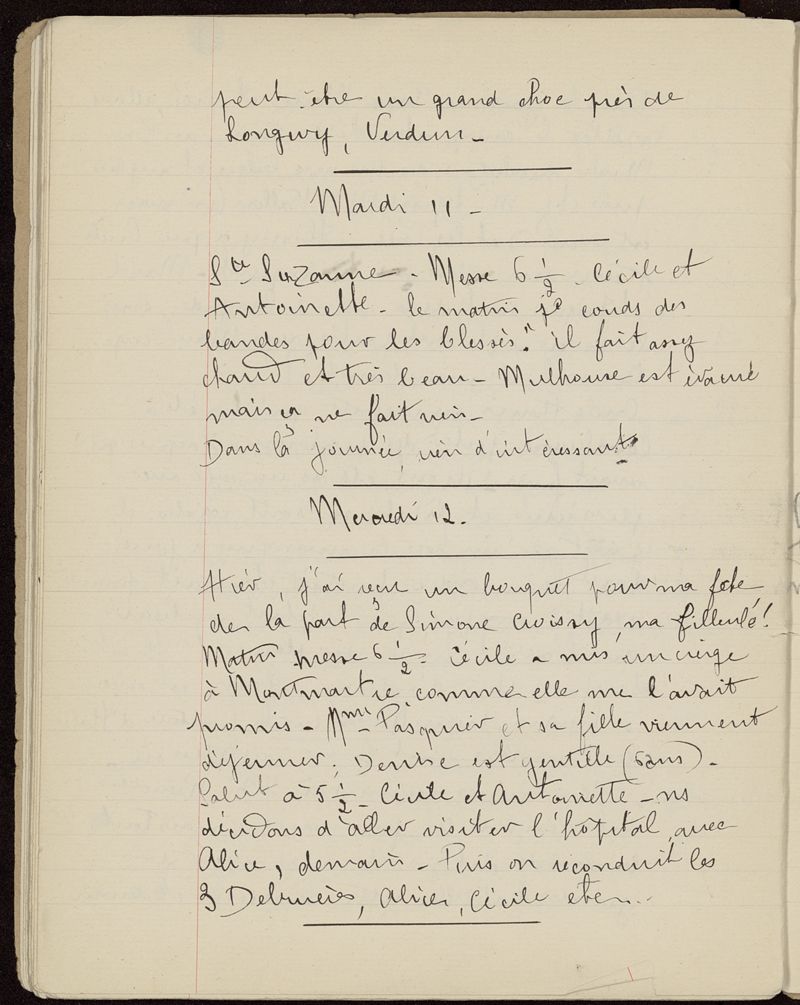 peut-être un grand choc près de
Longwy, Verdun -
Mardi 11 -
Ste Suzanne - Messe 6 1/2 - Cécile et
Antoinette - le matin je couds des
bandes pour les blessés. Il fait assez
chaud et très beau - Mulhouse est évacué
mais ça ne fait rien -
Dans la journée, rien d'intéressant -
Mercredi 12.
Hier, j'ai reçu un bouquet pour ma fête
de la part de Simone Croissy, ma filleule!
Matin messe 6 1/2 - Cécile a mis un cierge
à Montmartre comme elle me l'avait
promis - Mme Pasquier et sa fille viennent
déjeuner; Denise est gentille (6 ans) -
Salut à 5 1/2 - Cécile et Antoinette - ns
décidons d'aller visiter l'hôpital avec
Alice, demain - Puis on reconduit les
3 Alice, Cécile